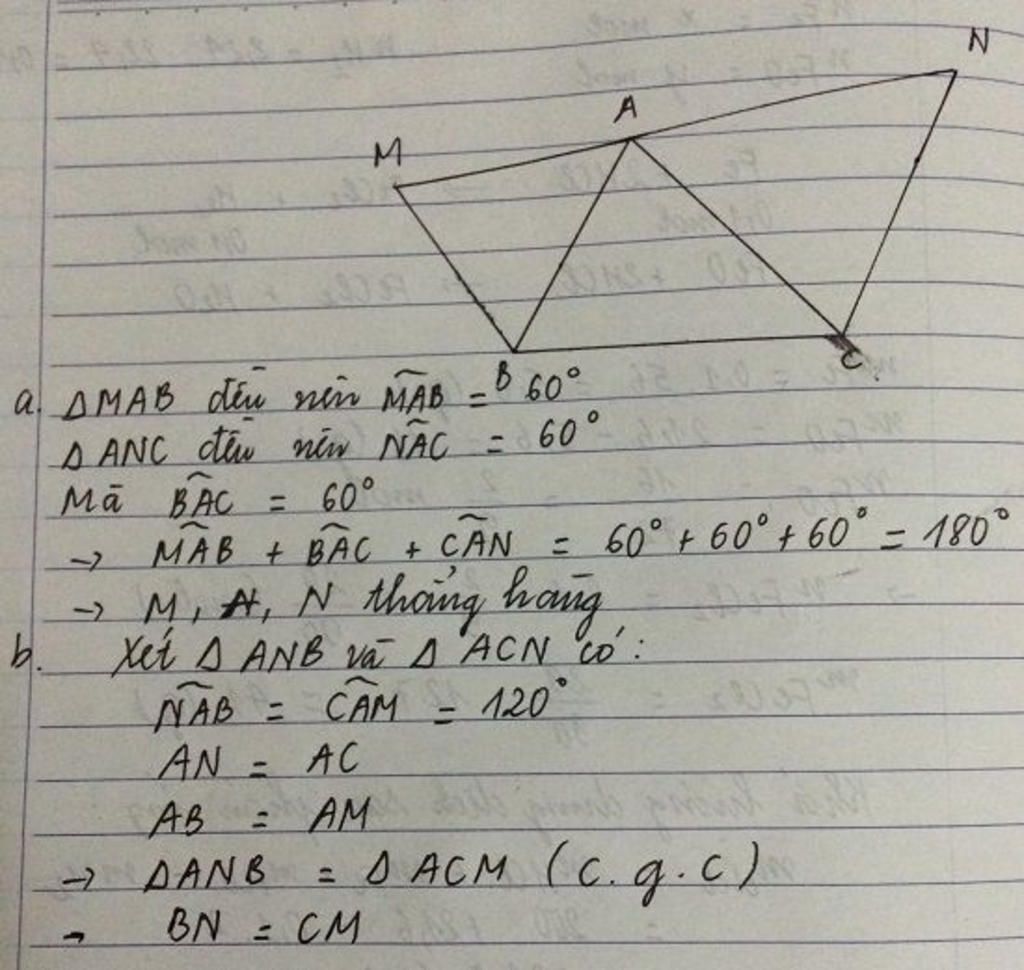 N
A
M
B
C
a. ΔMAB đều nên MAB = 60°
ΔANC đều nên NAC = 60°
Mà BAC = 60°
→ MAB + BAC + CAN = 60° + 60° + 60° = 180°
→ M, A, N thẳng hàng
b. Xét Δ ANB và Δ ACN có:
NAB = CAM = 120°
AN = AC
AB = AM
→ ΔANB = ΔACM (c.g.c)
- BN = CM